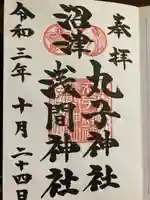 奉拝
丸子神社
沼津
浅間神社
令和三年十月二十四日